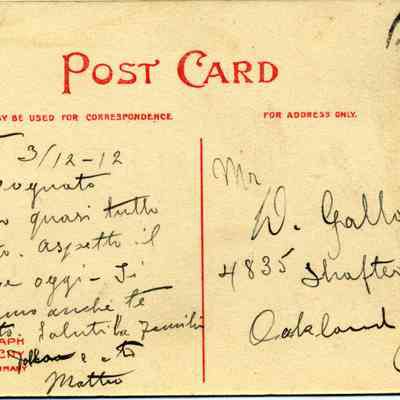 POST CARD
AY BE USED FOR CORRESPONDENCE
FOR ADDRESS ONLY.
3/12-12
ognato
o quasi tutto
to. Aspetto il
e oggi - Ti
mo anche te
to. Saluti la
RAPH
CRY
RMANY
e
Matteo
Mr
D. Gallo
4835 Shafter
Oakland